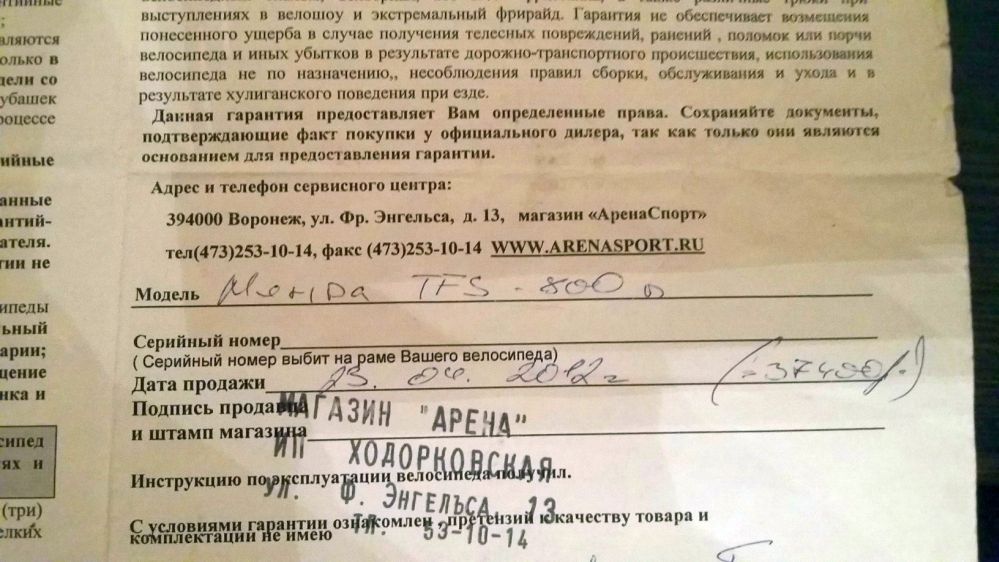 выступлениях в велошоу и экстремальный фрирайд. Гарантия не обеспечивает возмещения
понесенного ущерба в случае получения телесных повреждений, ранений , поломок или порчи
велосипеда и иных убытков в результате дорожно-транспортного происшествия, использования
велосипеда не по назначению,, несоблюдения правил сборки, обслуживания и ухода и в
результате хулиганского поведения при езде.
Данная гарантия предоставляет Вам определенные права. Сохраняйте документы,
подтверждающие факт покупки у официального дилера, так как только они являются
основанием для предоставления гарантии.
Адрес и телефон сервисного центра:
394000 Воронеж, ул. Фр. Энгельса, д. 13, магазин «АренаСпорт»
тел(473)253-10-14, факс (473)253-10-14 WWW.ARENASPORT.RU
Модель Мерида TFS - 800 D
Серийный номер
( Серийный номер выбит на раме Вашего велосипеда)
Дата продажи 23. 04. 2012г (=37400р.)
Подпись продавца
МАГАЗИН "АРЕНА"
и штамп магазина
ИП ХОДОРКОВСКАЯ
Инструкцию по эксплуатации велосипеда получил.
УЛ. Ф. ЭНГЕЛЬСА, 13
С условиями гарантии ознакомлен , претензий к качеству товара и
ТЛ. 53-10-14
комплектации не имею